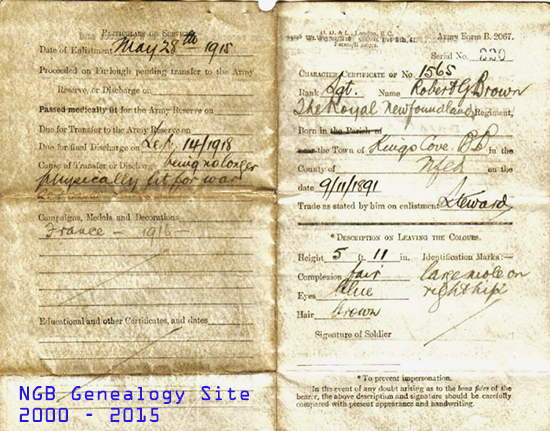 PARTICULARS OF SERVICE.
Date of Enlistment May 28th 1915
Proceeded on Furlough pending transfer to the Army
Reserve, or Discharge on
Passed medically fit for the Army Reserve on
Due for Transfer to the Army Reserve on
Due for final Discharge on 14/1918
Cause of Transfer or Discharge being no longer
physically fit for war
Campaigns, Medals and Decorations
France - 1916 -
Educational and other Certificates, and dates
NGB Genealogy Site
2000 - 2015
D. D. & L., London, E.C.
Army Form B. 2067.
Serial No. 220
CHARACTER CERTIFICATE OF No. 1565
Rank Sgt. Name Robert G Brown
The Royal Newfoundland Regiment,
Born in the Parish of
near the Town of Kings Cove B.B in the
County of Nfld on the
date 9/11/1891
Trade as stated by him on enlistment Steward
* DESCRIPTION ON LEAVING THE COLOURS.
Height 5 ft. 11 in. Identification Marks:—
Complexion fair large mole on
Eyes Blue right hip
Hair Brown
Signature of Soldier
* To prevent impersonation.
In the event of any doubt arising as to the bona fides of the
bearer, the above description and signature should be carefully
compared with present appearance and handwriting.